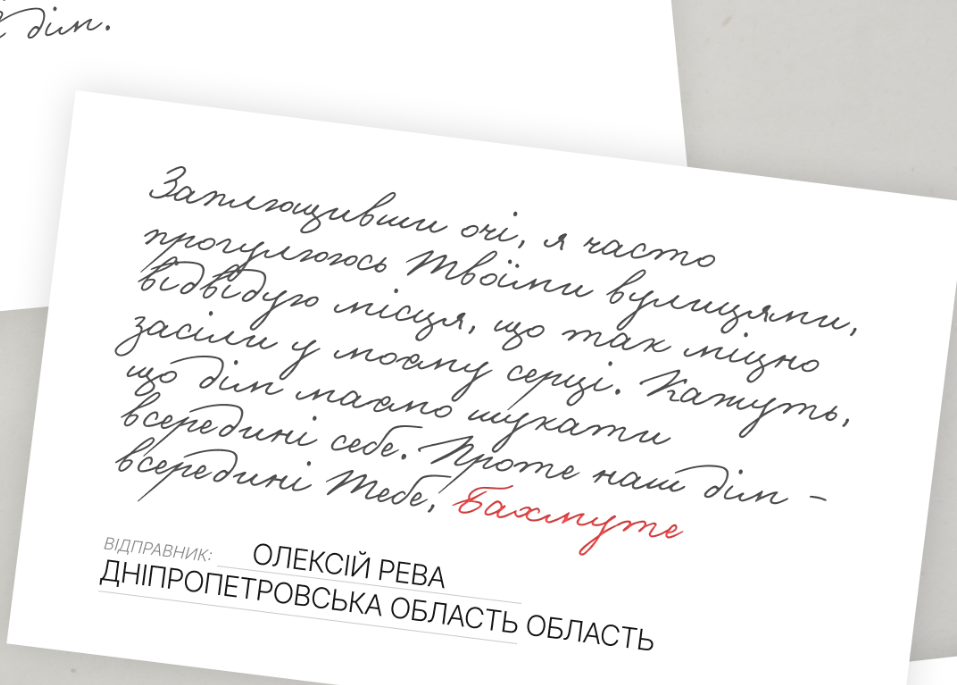 дім.
Заплющивши очі, я часто
прогулююсь Твоїми вулицями,
відвідую місця, що так міцно
засіли у моєму серці. Кажуть,
що дім маємо шукати
всередині себе. Проте наш дім –
всередині Тебе, Бахмуте
ВІДПРАВНИК: ОЛЕКСІЙ РЕВА
ДНІПРОПЕТРОВСЬКА ОБЛАСТЬ ОБЛАСТЬ